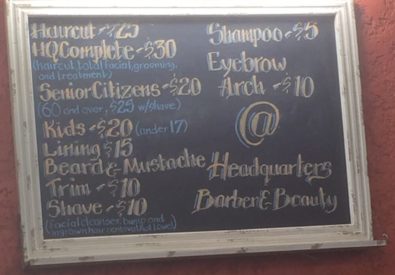 Haircut - $25
HQ Complete - $30
(haircut, total facial, grooming,
and treatment)
Senior Citizens - $20
(60 and over, $25 w/shave)
Kids - $20 (under 17)
Lining $15
Beard & Mustache
Trim - $10
Shave - $10
(Facial cleanser, bump and
ingrown hair removal, Hot Towel)
Shampoo - $5
Eyebrow
Arch - $10
@
Headquarters
Barber & Beauty